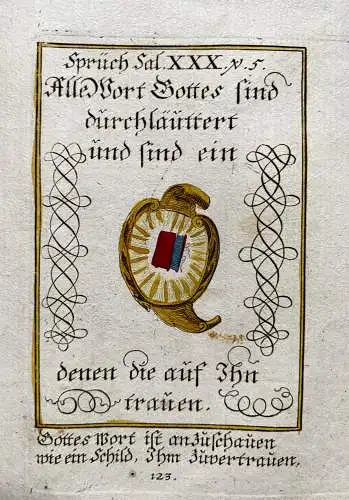 Sprüch Sal. XXX. v. 5.
Alle Wort Gottes sind
durchläuttert
und sind ein
denen die auf Ihn
trauen.
Gottes Wort ist anzuschauen
wie ein Schild, Ihm zuvertrauen,
123.